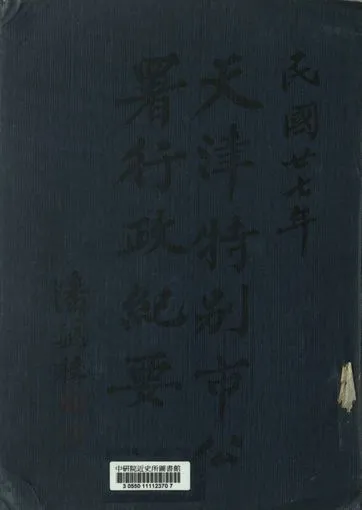 民國廿七年
天津特別市公
署行政紀要
潘
中研院近史所圖書館
3 0550 11112370 7